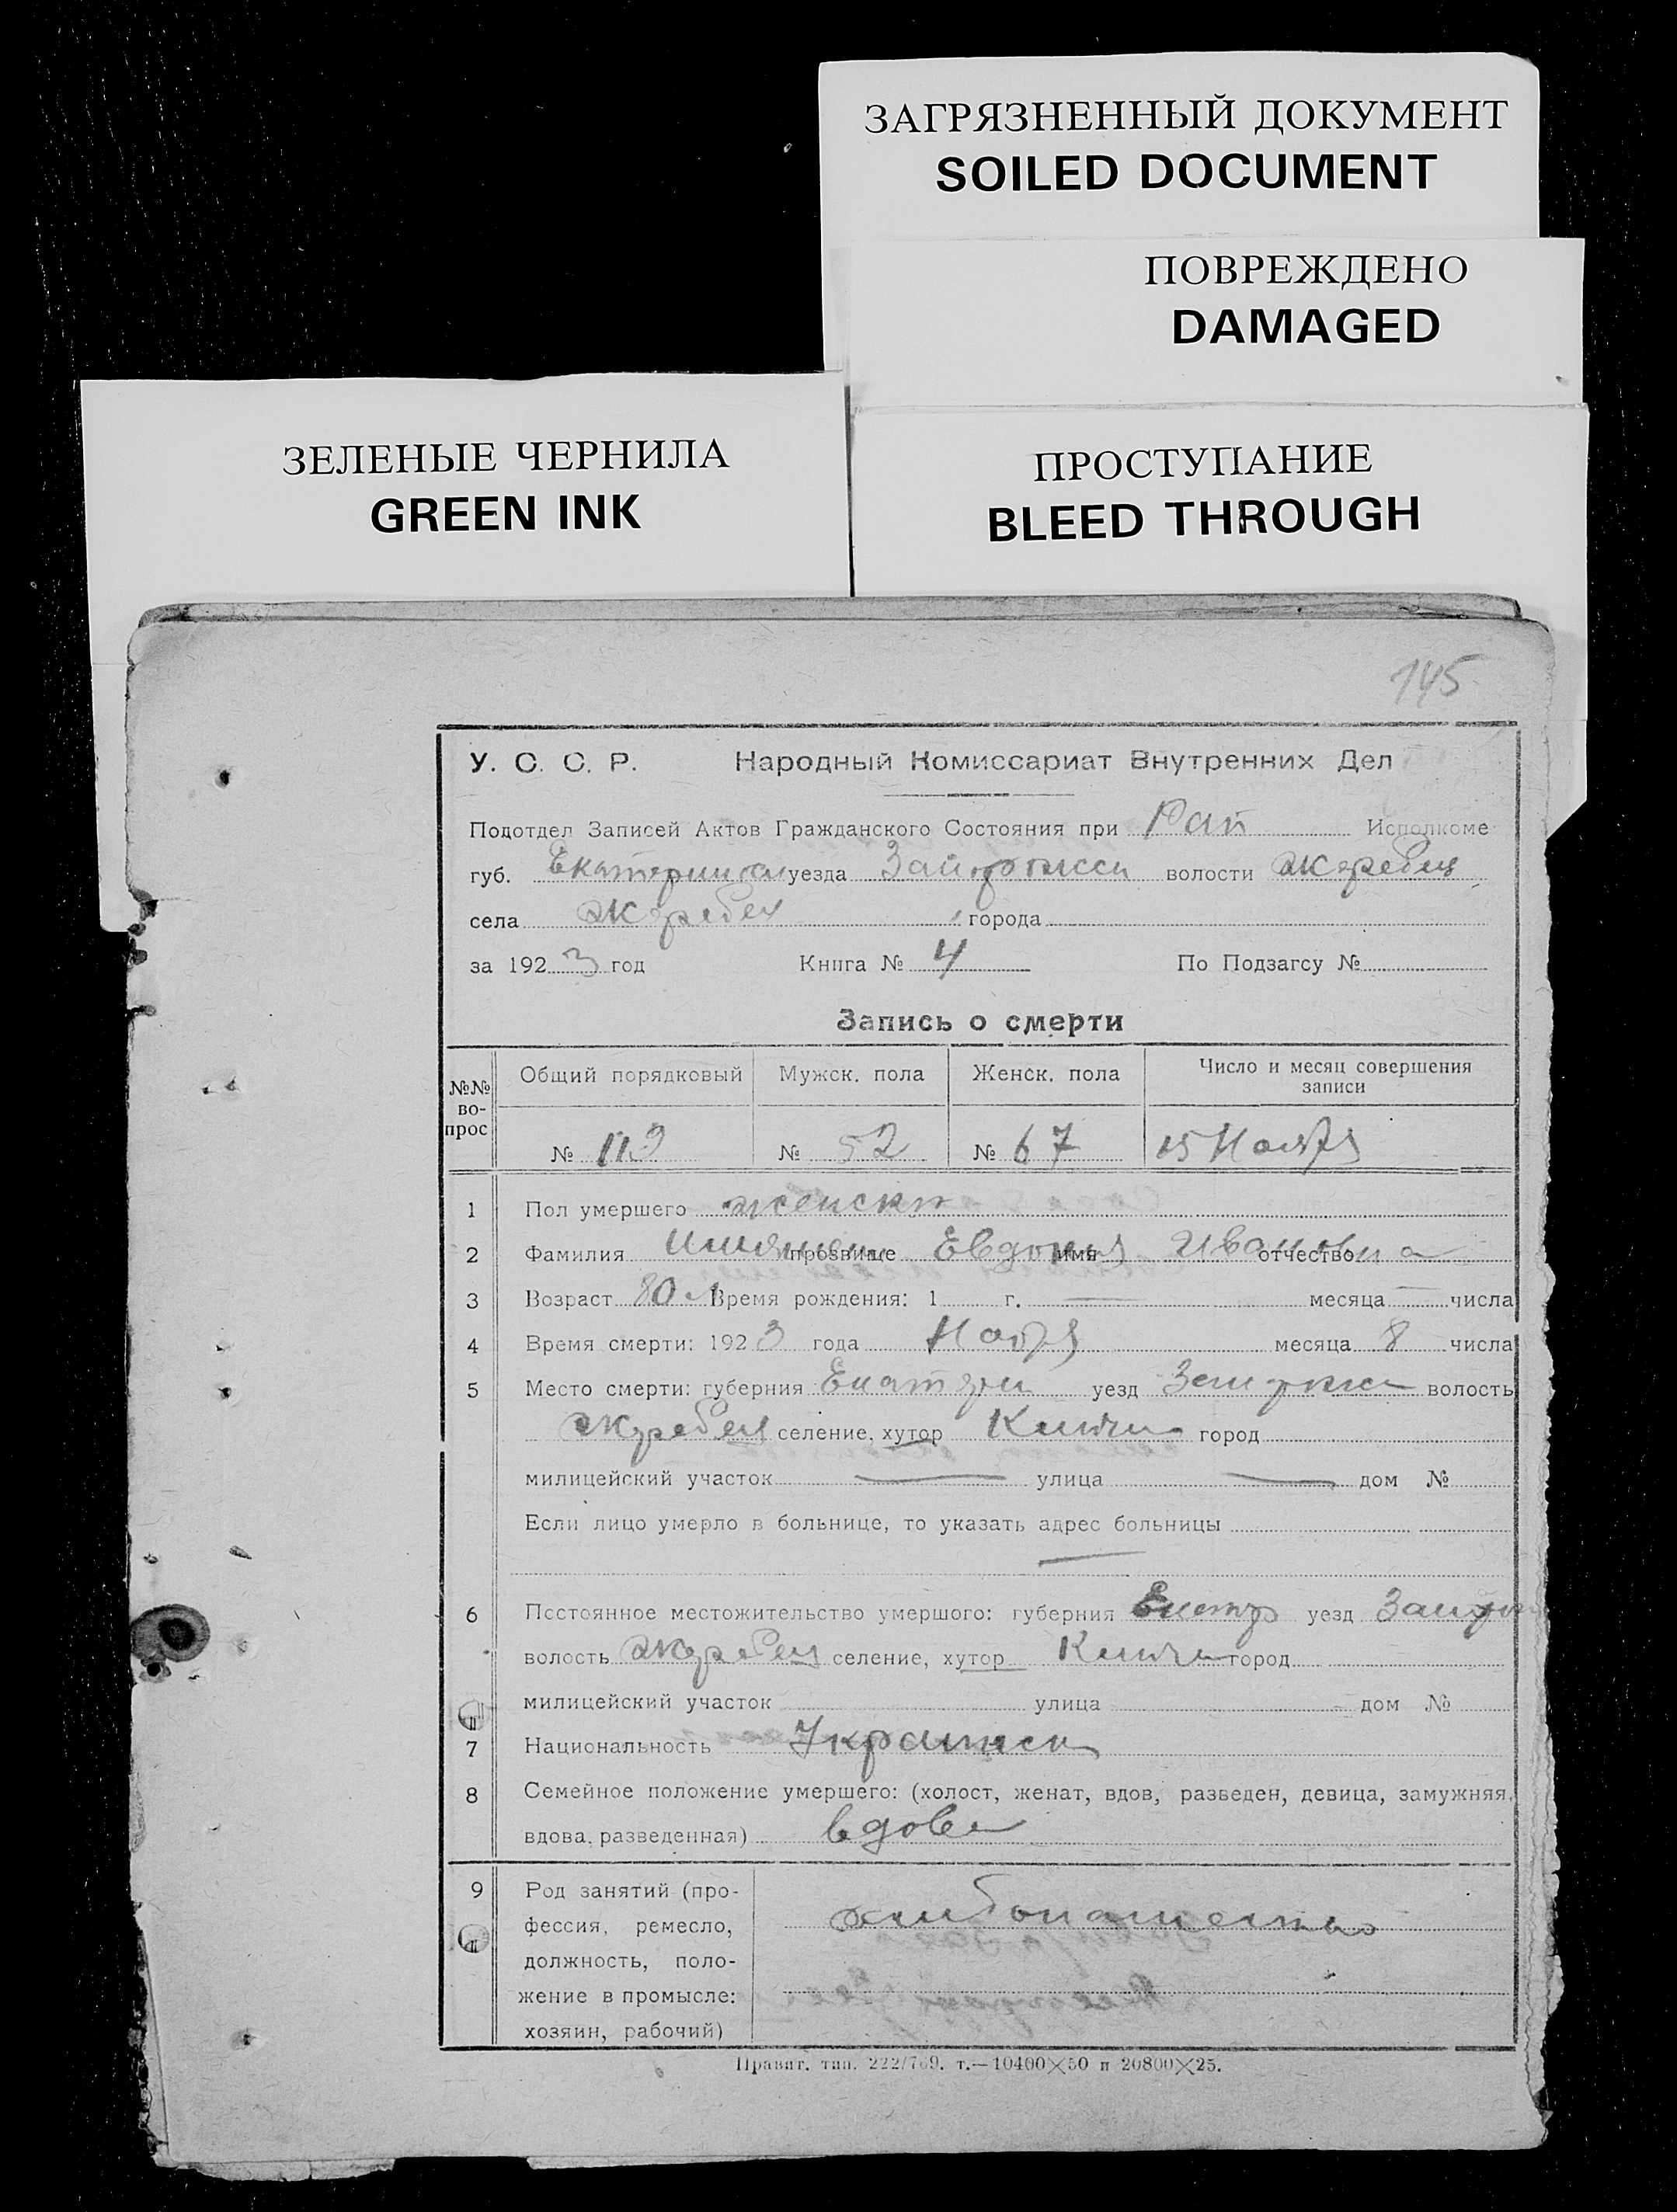 ЗАГРЯЗНЕННЫЙ ДОКУМЕНТ
SOILED DOCUMENT
ПОВРЕЖДЕНО
DAMAGED
ЗЕЛЕНЫЕ ЧЕРНИЛА
GREEN INK
ПРОСТУПАНИЕ
BLEED THROUGH
145
У. С. С. Р. Народный Комиссариат Внутренних Дел
Подотдел Записей Актов Гражданского Состояния при Рай Исполкоме
губ. уезда волости Жеребец
села Жеребец города
за 1923 год Книга № 4 По Подзагсу №
Запись о смерти
№№ во-прос Общий порядковый Мужск. пола Женск. пола Число и месяц совершения записи
№ 119 № 52 № 67 15 Ноября
1 Пол умершего женский
2 Фамилия прозвище Евдокия имя Ивановна отчество
3 Возраст 80 л Время рождения: 1 г. месяца числа
4 Время смерти: 1923 года Ноября месяца 8 числа
5 Место смерти: губерния Екатери уезд волость
Жеребец селение, хутор город
милицейский участок улица дом №
Если лицо умерло в больнице, то указать адрес больницы
6 Постоянное местожительство умершого: губерния Екатер уезд
волость Жеребец селение, хутор город
милицейский участок улица дом №
7 Национальность
8 Семейное положение умершего: (холост, женат, вдов, разведен, девица, замужняя,
вдова, разведенная) вдова
9 Род занятий (про-
фессия, ремесло,
должность, поло-
жение в промысле:
хозяин, рабочий)
Правит. тип. 222/769. т.—10400×50 и 20800×25.